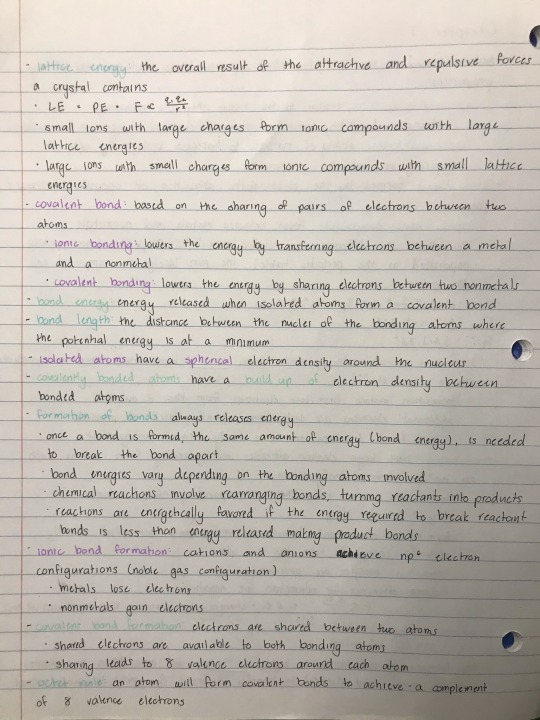 - lattice energy: the overall result of the attractive and repulsive forces
a crystal contains
· LE = PE = F ∝ q₁q₂/r²
· small ions with large charges form ionic compounds with large
lattice energies
· large ions with small charges form ionic compounds with small lattice
energies.
- covalent bond: based on the sharing of pairs of electrons between two
atoms
· ionic bonding: lowers the energy by transferring electrons between a metal
and a nonmetal
· covalent bonding: lowers the energy by sharing electrons between two nonmetals
- bond energy: energy released when isolated atoms form a covalent bond
- bond length: the distance between the nuclei of the bonding atoms where
the potential energy is at a minimum
- isolated atoms have a spherical electron density around the nucleus
- covalently bonded atoms have a build up of electron density between
bonded atoms.
- formation of bonds always releases energy
· once a bond is formed, the same amount of energy (bond energy), is needed
to break the bond apart
· bond energies vary depending on the bonding atoms involved
· chemical reactions involve rearranging bonds, turning reactants into products
· reactions are energetically favored if the energy required to break reactant
bonds is less than energy released making product bonds
- ionic bond formation: cations and anions achieve np⁶ electron
configurations (noble gas configuration)
· metals lose electrons
· nonmetals gain electrons
- covalent bond formation: electrons are shared between two atoms
· shared electrons are available to both bonding atoms
· sharing leads to 8 valence electrons around each atom
- octet rule: an atom will form covalent bonds to achieve a complement
of 8 valence electrons